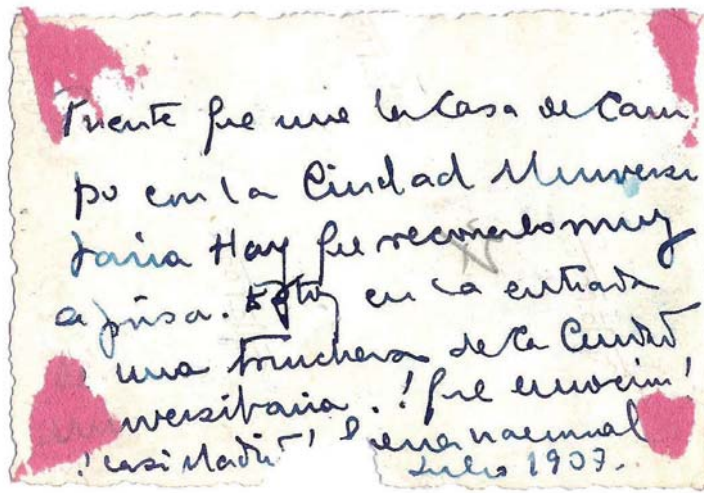 Puente que une la Casa de Cam
po con la Ciudad Universi
taria Hay que recorrerlo muy
a prisa. Estoy en la entrada
de una trinchera de la Ciudad
Universitaria. ! Que emoción!
! casi Madrid! nacional
Julio 1937.